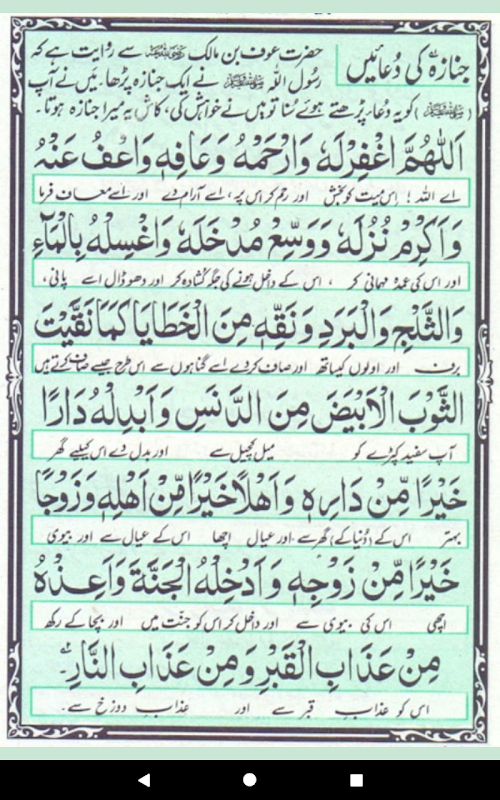 جنازہ کی دُعائیں
حضرت عوف بن مالک رضی اللہ عنہ سے روایت ہے کہ
رسول اللہ ﷺ نے ایک جنازہ پڑھا۔ میں نے آپ
(ﷺ) کو یہ دُعا پڑھتے ہوئے سُنا تو میں نے خواہش کی، کاش یہ میرا جنازہ ہوتا۔
اَللّٰهُمَّ اغْفِرْلَهٗ وَارْحَمْهُ وَعَافِهٖ وَاعْفُ عَنْهُ
اے اللہ! اس میت کو بخش اور رحم کر اس پر، اسے آرام دے اور اسے معاف فرما
وَاَكْرِمْ نُزُلَهٗ وَوَسِّعْ مُدْخَلَهٗ وَاغْسِلْهُ بِالْمَآءِ
اور اس کی عمدہ مہمانی کر ، اس کے داخل ہونے کی جگہ کشادہ کر اور دھو ڈال اسے پانی،
وَالثَّلْجِ وَالْبَرَدِ وَنَقِّهٖ مِنَ الْخَطَايَا كَمَا نَقَّيْتَ
برف اور اولوں کیساتھ اور صاف کر دے اسے گناہوں سے اس طرح جیسے صاف کرتے ہیں
الثَّوْبَ الْاَبْيَضَ مِنَ الدَّنَسِ وَاَبْدِلْهُ دَارًا
آپ سفید کپڑے کو میل کچیل سے اور بدل دے اس کیلیے گھر
خَيْرًا مِّنْ دَارِهٖ وَاَهْلًا خَيْرًا مِّنْ اَهْلِهٖ وَزَوْجًا
بہتر اس کے (دُنیا کے) گھر سے، اور عیال اچھا اس کے عیال سے اور بیوی
خَيْرًا مِّنْ زَوْجِهٖ وَاَدْخِلْهُ الْجَنَّةَ وَاَعِذْهُ
اچھی اس کی بیوی سے اور داخل کر اس کو جنّت میں اور بچا کے رکھ
مِنْ عَذَابِ الْقَبْرِ وَمِنْ عَذَابِ النَّارِ۔
اس کو عذاب قبر سے اور عذاب دوزخ سے۔